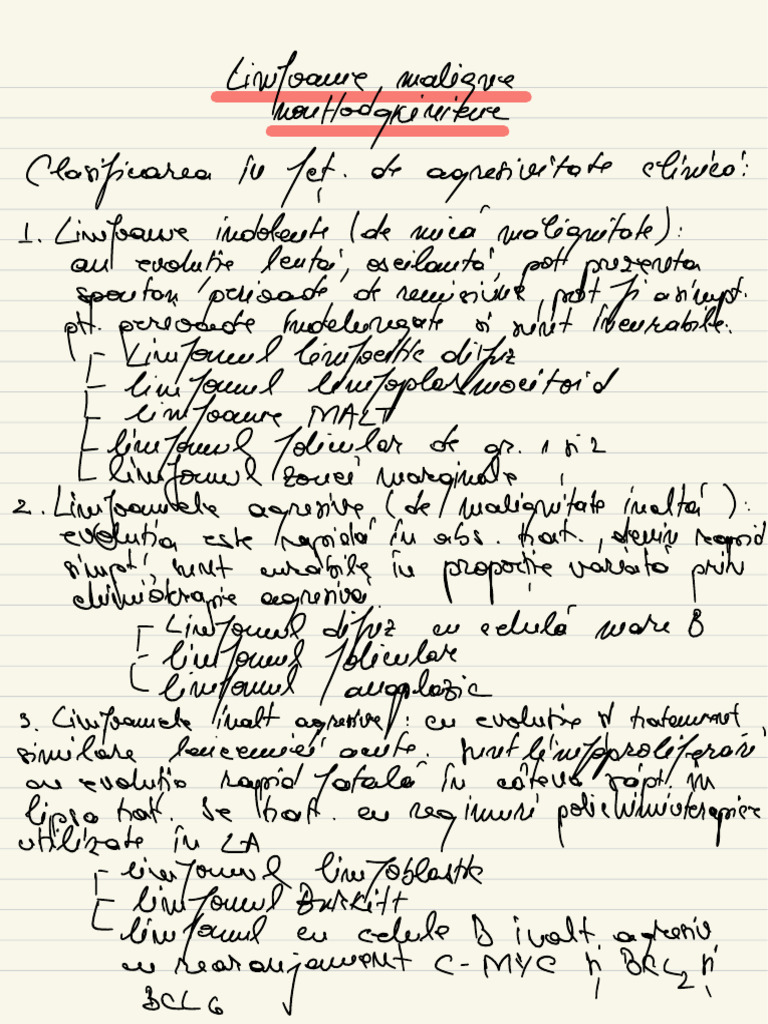 Limfoame maligne
nonHodgkiniene
Clasificarea în fct. de agresivitate clinică:
1. Limfoame indolente (de mică malignitate):
au evoluție lentă, oscilantă, pot prezenta
spontan perioade de remisiune, pot fi asimpt.
ptr. perioade îndelungate și sunt incurabile.
- Limfomul limfocitic difuz
- limfomul limfoplasmocitoid
- limfoame MALT
- limfomul folicular de gr. 1 și 2
- limfomul zonei marginale
2. Limfoamele agresive (de malignitate înaltă):
evoluția este rapidă în abs. trat., devin rapid
simpt, sunt curabile în proporție variată prin
chimioterapie agresivă.
- Limfomul difuz cu celulă mare B
- limfomul folicular
- limfomul anaplazic
3. Limfoamele înalt agresive: cu evoluție și tratament
similare leucemiei acute. Sunt limfoproliferări
cu evoluție rapid fatală în câteva săpt. în
lipsa trat. Se trat. cu regimuri polichimioterapice
utilizate în LA
- limfomul limfoblastic
- limfomul Burkitt
- limfomul cu celule B înalt agresiv
cu rearanjament C-MYC și BCL2 și
BCL6